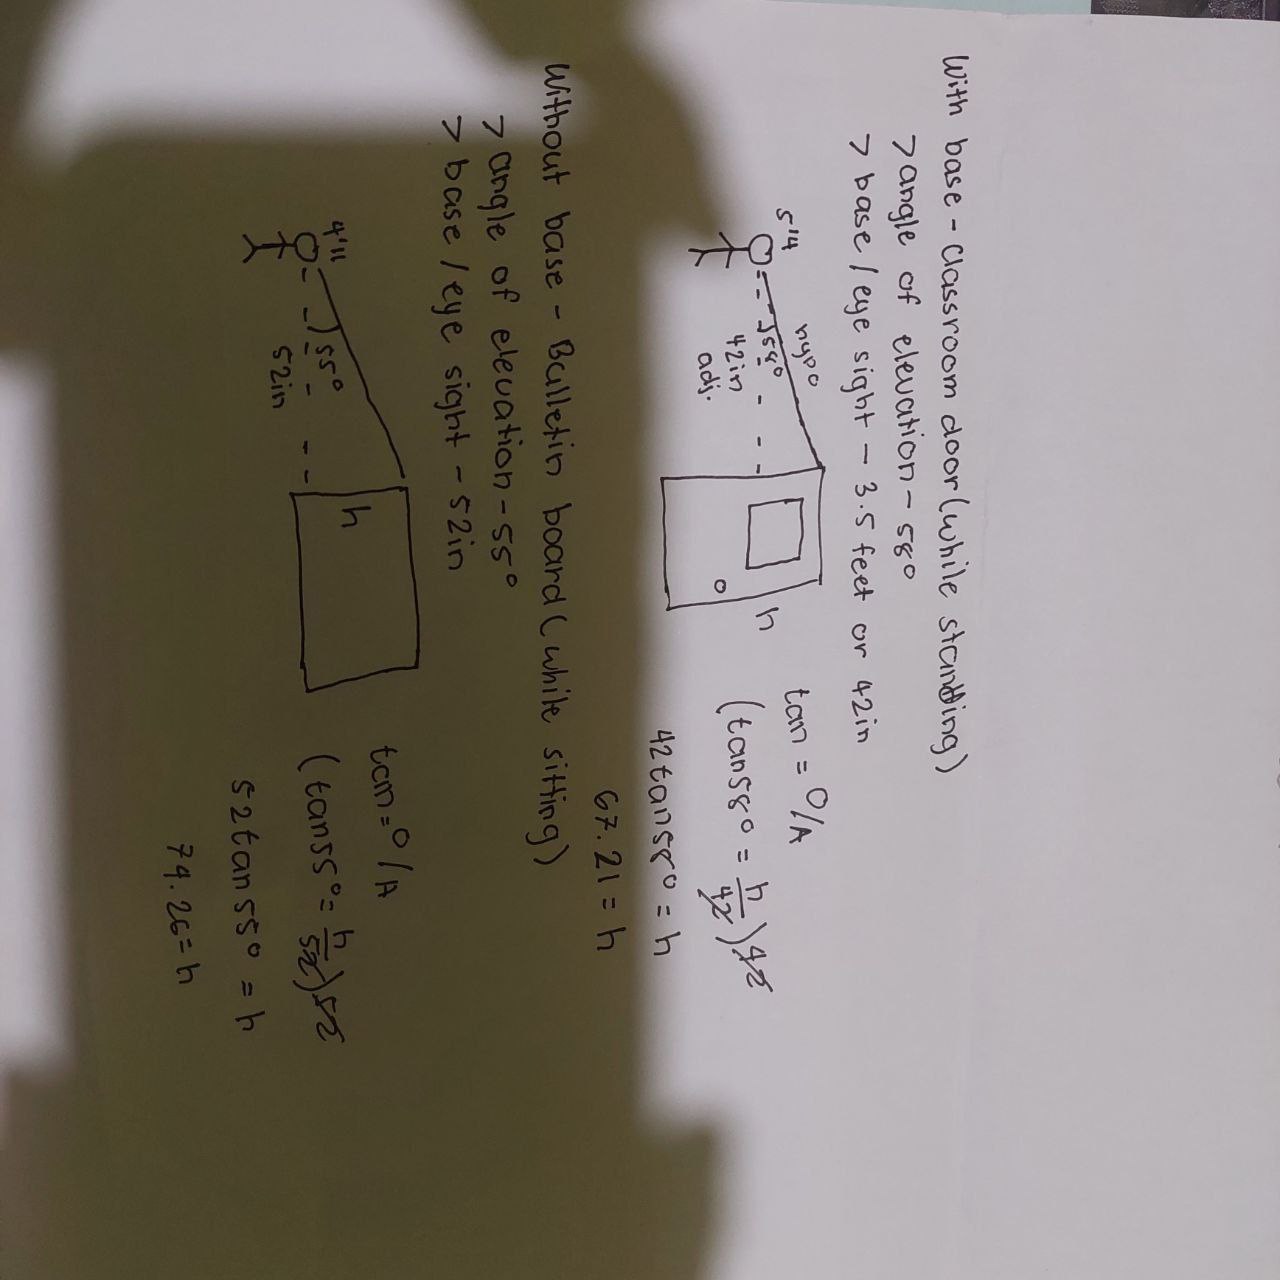 With base - Classroom door (while standing)
> angle of elevation - 58°
> base / eye sight - 3.5 feet or 42in
5'4
hypo
58°
42in
adj.
h
tan = O/A
(tan58° = h/42)42
42tan58° = h
67.21 = h
Without base - Bulletin board (while sitting)
> angle of elevation - 55°
> base / eye sight - 52in
4'11
55°
52in
h
tan = O/A
(tan55° = h/52)52
52tan55° = h
74.26 = h